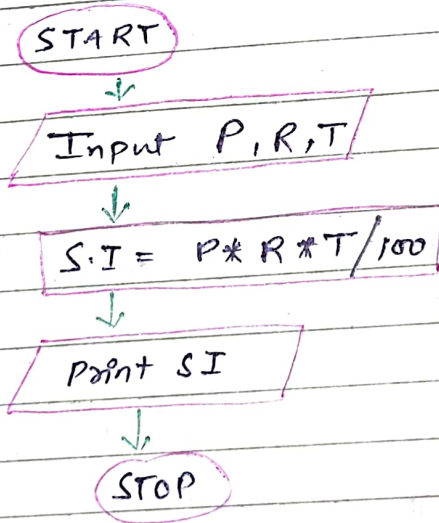 START
Input P, R, T
S.I = P* R * T/100
Print SI
STOP